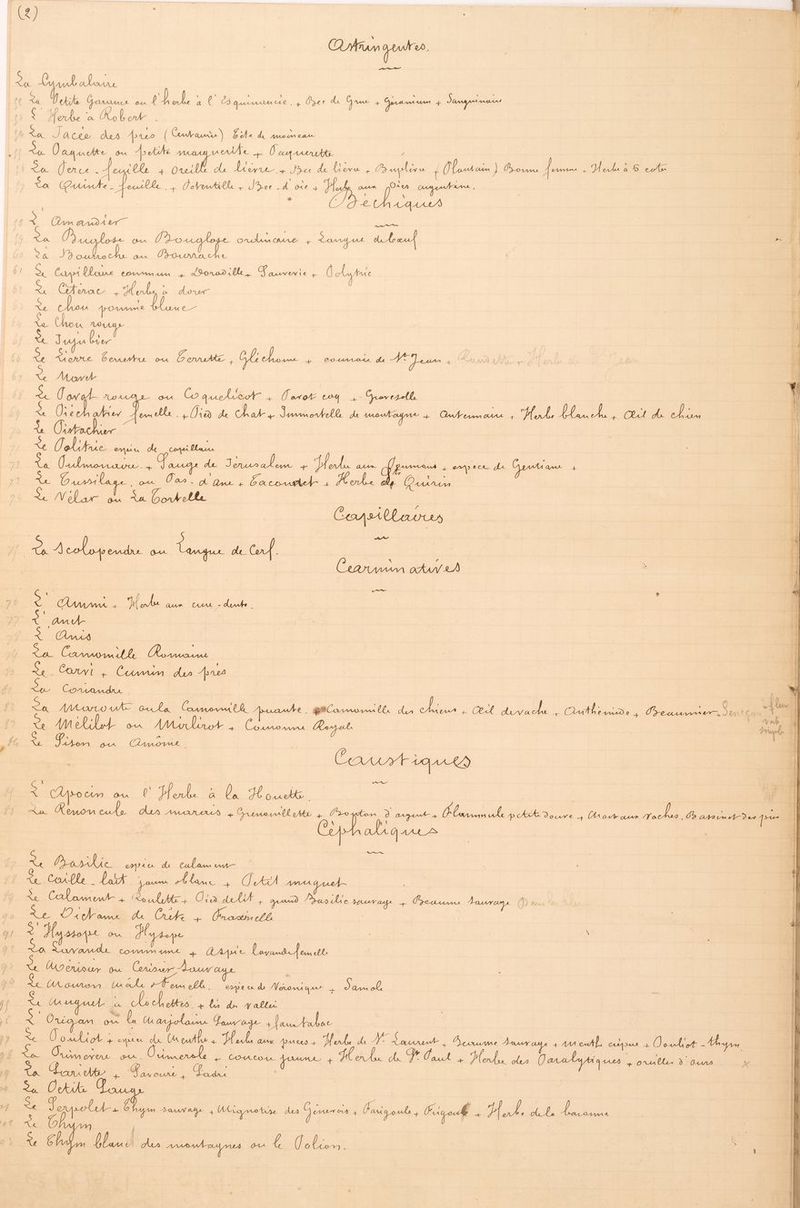 (2)
Astringentes.
La Cymbalaire
La Petite Garance ou l'herbe à l'Esquinancie. + Bec de Grue + Géranium + Sanguinaire
L'Herbe à Robert.
La Jacée des prés (Centaurée) Tête de moineau
La Paquette ou petite marguerite + Paquerette
La Perce-feuille + Oreille de lièvre + Bec de lièvre + Buplèvre (Plantain) Bonne femme - Herbe à 5 cotes
La Quinte-feuille. + Potentille + Bec d'oie + Herbe aux pies argentine.
Béchiques
L'Amandier
La Buglose ou Bouglose ordinaire + Langue de bœuf
La Bourroche ou Bourrache
61 Le Capillaire commun + Doradille + Sauvevie + Polytric
Le Cétérac + Herbe à dorer
Le chou pommé blanc
Le Chou rouge
Le Jujubier
Le Lierre Terrestre ou Terrette, Gléchome + couronne de St Jean +
Le Mavet
Le Pavot rouge ou Coquelicot + Pavot coq + Gravesolle
Le Piéchatier femelle. + Pied de Chat + Immortelle de montagne + Antennaire + Herbe blanche + Œil de chien
Le Pistachier
Le Politric espèce de capillaire
La Pulmonaire. + Sauge de Jérusalem + Herbe aux poumons + espèce de Gentiane +
Le Tussilage, ou Pas-d'ane + Taconnet + Herbe de Quirin
Le Vélar ou La Tortelle
Capillaires
La Scolopendre ou Langue de Cerf.
Cearminatives
76 L'Ammi + Herbe aux cure-dents.
77 L'anet
L'Anis
La Camomille Romaine
Le Carvi + Cumin des prés
La Coriandre
La Maroute ou la Camomille puante. Camomille des chiens + Œil de vache + Anthémide +
Le Mélilot ou Mirlirot + Couronne Royale
84 Le Sison ou Amôme
Caustiques
L'Apocin ou l'Herbe à la Houette.
La Renoncule des marais + Grenouillette + Bouton d'argent + Flammule petite douve + Mort aux vaches, Bassinet des prés
Céphaliques
Le Basilic espèce de calament
Le Caille-lait jaune & blanc + Petit muguet
Le Calament + Roulette + Pied de lit + grand Basilic sauvage + Beaume sauvage
Le Dictame de Crète + Fraxinelle
91 L'Hyssope ou Hysope
La Lavande commune + Aspic lavande femelle
Le Merisier ou Cerisier Sauvage
Le Mouron mâle & Femelle. espèce de Véronique + Samole
Le Muguet à clochettes + lis des vallées
L'Origan ou la Marjolaine Sauvage + faux tabac
Le Pouliot + espèce de Menthe + Herbe aux puces + Herbe de St Laurent + Beaume sauvage + menthe crépue + Pouliot-thym
La Primevère ou Primerole + coucou jaune + Herbe de St Paul + Herbe des Paralytiques + oreilles d'ours
La Sariette + Savouré + Sadri
La Petite Sauge
Le Serpolet + Thym sauvage + Mignotise des Génevois + Farigoule + Frigoule + Herbe de la
Le Thym
Le Thym blanc des montagnes ou le Polion.